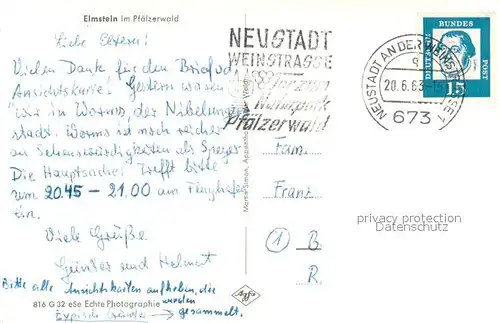 Elmstein im Pfälzerwald
Liebe Eltern!
Vielen Dank für den Brief u.
Ansichtskarte! Gestern waren
wir in Worms der Nibelungen-
stadt. Worms ist noch reicher
an Sehenswürdigkeiten als Speyer.
Die Hauptsache: Trefft bitte
um 20.45 - 21.00 am Flughafen
ein.
Viele Grüße
Günter und Helmut
Bitte alle Ansichtskarten aufheben, die
werden
gesammelt.
Typisch Günter
816 G 32 eSe Echte Photographie
Agfa
NEUSTADT
WEINSTRASSE
Tor zum
Naturpark
Pfälzerwald
NEUSTADT AN DER WEINSTRASSE 1
20.6.63
673
DEUTSCHE
BUNDES
POST
15
Fam.
Franz
1 B
R.
privacy protection
Datenschutz